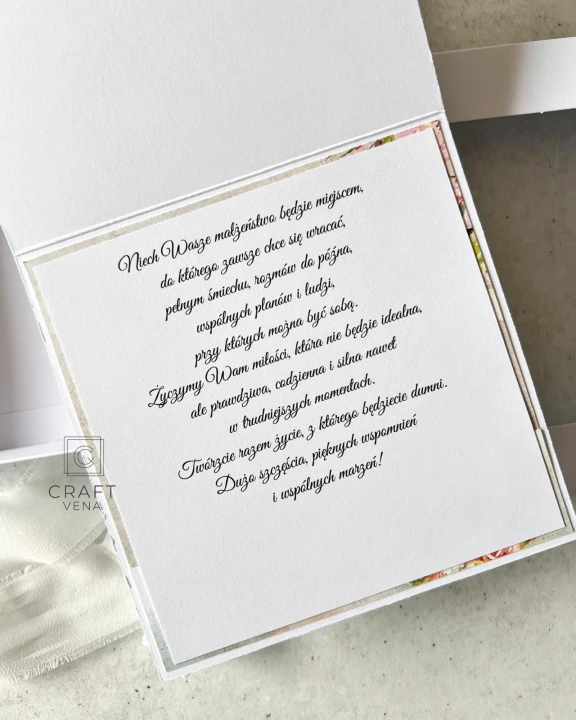 Niech Wasze małżeństwo będzie miejscem,
do którego zawsze chce się wracać,
pełnym śmiechu, rozmów do późna,
wspólnych planów i ludzi,
przy których można być sobą.
Życzymy Wam miłości, która nie będzie idealna,
ale prawdziwa, codzienna i silna nawet
w trudniejszych momentach.
Twórzcie razem życie, z którego będziecie dumni.
Dużo szczęścia, pięknych wspomnień
i wspólnych marzeń!
CRAFT
VENA